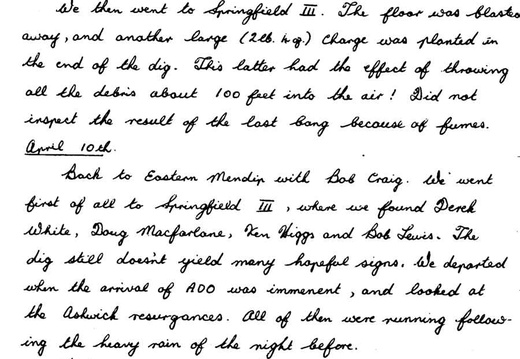 We then went to Springfield III. The floor was blasted
away, and another large (2lb. h.q.) charge was planted in
the end of the dig. This latter had the effect of throwing
all the debris about 100 feet into the air! Did not
inspect the result of the last bang because of fumes.
April 10th.
Back to Eastern Mendip with Bob Craig. We went
first of all to Springfield III, where we found Derek
White, Doug Macfarlane, Ken Higgs and Bob Lewis. The
dig still doesn't yield many hopeful signs. We departed
when the arrival of ADO was immenent, and looked at
the Ashwick resurgances. All of then were running follow-
ing the heavy rain of the night before.